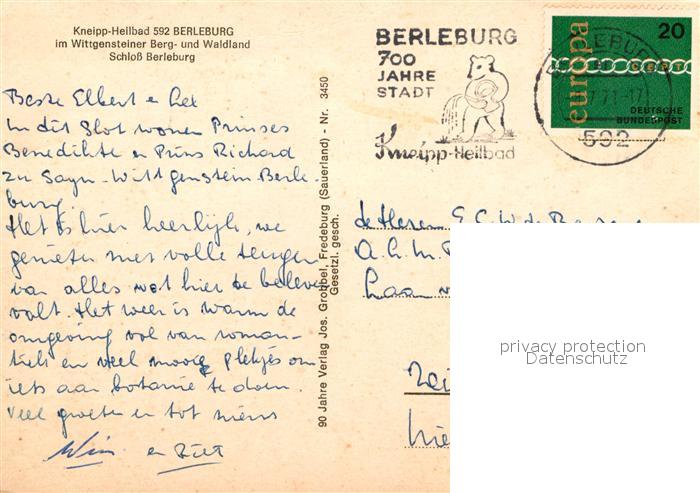 Kneipp-Heilbad 592 BERLEBURG
im Wittgensteiner Berg- und Waldland
Schloß Berleburg
Beste Elbert e Lex
In dit Slot wonen Prinses
Benedikte en Prins Richard
zu Sayn-Wittgenstein-Berle-
burg.
Het is hier heerlijk, we
genieten met volle teugen
van alles wat hier te beleven
valt. Het weer is warm de
omgeving vol van roman-
tiek en veel mooie plekjes om
iets aan botanie te doen.
Veel groeten en tot ziens
Wim en Ziet
90 Jahre Verlag Jos. Grobbel, Fredeburg (Sauerland) - Nr. 3450
Gesetzl. gesch.
BERLEBURG
700
JAHRE
STADT
Kneipp-Heilbad
europa
20
CEPT
DEUTSCHE
BUNDESPOST
BERLEBURG
7.71.-17
592
de Heren E.C.W. de
a.h.M.
Laan
privacy protection
Datenschutz